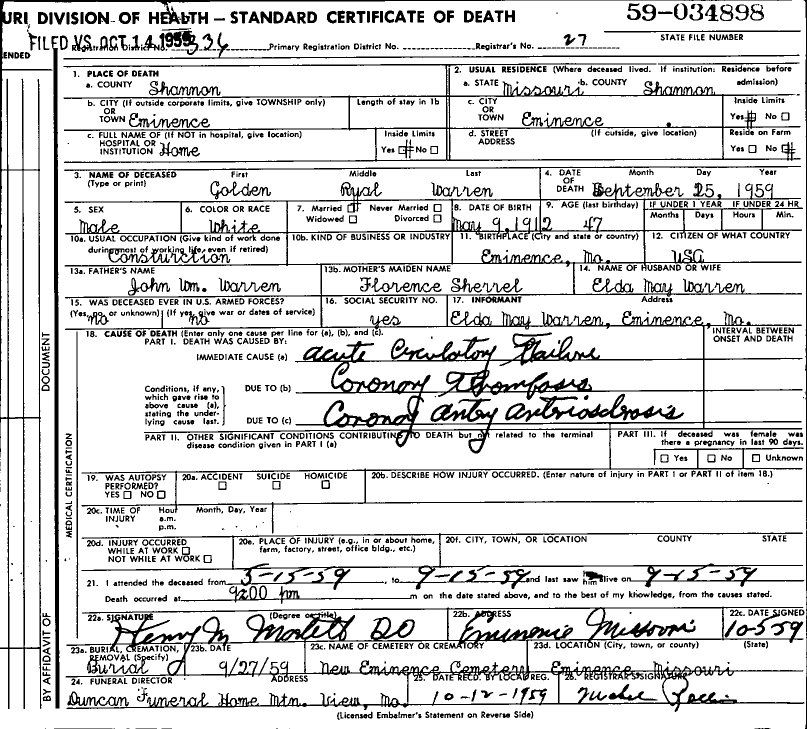 URI DIVISION OF HEALTH — STANDARD CERTIFICATE OF DEATH
59-034898
FILED VS. OCT 14 1959 336
Registration District No. Primary Registration District No. Registrar's No. 27
STATE FILE NUMBER
ENDED
1. PLACE OF DEATH
a. COUNTY Shannon
2. USUAL RESIDENCE (Where deceased lived. If institution: Residence before admission)
a. STATE Missouri b. COUNTY Shannon
b. CITY (If outside corporate limits, give TOWNSHIP only) OR TOWN Eminence
Length of stay in 1b
c. CITY OR TOWN Eminence
Inside Limits
Yes No
c. FULL NAME OF (If NOT in hospital, give location) HOSPITAL OR INSTITUTION Home
Inside Limits
Yes No
d. STREET ADDRESS (If outside, give location)
Reside on Farm
Yes No
3. NAME OF DECEASED (Type or print)
First Middle Last
Golden Ryal Warren
4. DATE OF DEATH
Month Day Year
September 25, 1959
5. SEX
Male
6. COLOR OR RACE
White
7. Married Never Married
Widowed Divorced
8. DATE OF BIRTH
May 9, 1912
9. AGE (last birthday)
47
IF UNDER 1 YEAR IF UNDER 24 HR
Months Days Hours Min.
10a. USUAL OCCUPATION (Give kind of work done during most of working life, even if retired)
Consturction
10b. KIND OF BUSINESS OR INDUSTRY
11. BIRTHPLACE (City and state or country)
Eminence, Mo.
12. CITIZEN OF WHAT COUNTRY
USA
13a. FATHER'S NAME
John Wm. Warren
13b. MOTHER'S MAIDEN NAME
Florence Sherrel
14. NAME OF HUSBAND OR WIFE
Elda May Warren
15. WAS DECEASED EVER IN U.S. ARMED FORCES?
(Yes, no, or unknown) (If yes, give war or dates of service)
no no
16. SOCIAL SECURITY NO.
yes
17. INFORMANT Address
Elda May Warren, Eminence, Mo.
18. CAUSE OF DEATH (Enter only one cause per line for (a), (b), and (c).
PART I. DEATH WAS CAUSED BY:
INTERVAL BETWEEN ONSET AND DEATH
IMMEDIATE CAUSE (a) Acute Circulatory Failure
Conditions, if any, which gave rise to above cause (a), stating the underlying cause last.
DUE TO (b) Coronary Thrombosis
DUE TO (c) Coronary Artery Arteriosclerosis
PART II. OTHER SIGNIFICANT CONDITIONS CONTRIBUTING TO DEATH but not related to the terminal disease condition given in PART I (a)
PART III. If deceased was female was there a pregnancy in last 90 days.
Yes No Unknown
19. WAS AUTOPSY PERFORMED?
YES NO
20a. ACCIDENT SUICIDE HOMICIDE
20b. DESCRIBE HOW INJURY OCCURRED. (Enter nature of injury in PART I or PART II of item 18.)
20c. TIME OF INJURY
Hour Month, Day, Year
a.m.
p.m.
20d. INJURY OCCURRED
WHILE AT WORK
NOT WHILE AT WORK
20e. PLACE OF INJURY (e.g., in or about home, farm, factory, street, office bldg., etc.)
20f. CITY, TOWN, OR LOCATION COUNTY STATE
21. I attended the deceased from 5-15-59, to 9-15-59 and last saw him alive on 9-15-59
Death occurred at 9:00 pm m on the date stated above, and to the best of my knowledge, from the causes stated.
22a. SIGNATURE (Degree or title)
Henry M DO
22b. ADDRESS
Eminence Missouri
22c. DATE SIGNED
10-5-59
23a. BURIAL, CREMATION, REMOVAL (Specify)
Burial
23b. DATE
9/27/59
23c. NAME OF CEMETERY OR CREMATORY
New Eminence Cemetery
23d. LOCATION (City, town, or county) (State)
Eminence, Missouri
24. FUNERAL DIRECTOR ADDRESS
Duncan Funeral Home Mtn. View, Mo.
25. DATE RECD. BY LOCAL REG.
10-12-1959
26. REGISTRAR'S SIGNATURE
(Licensed Embalmer's Statement on Reverse Side)
DOCUMENT
MEDICAL CERTIFICATION
BY AFFIDAVIT OF